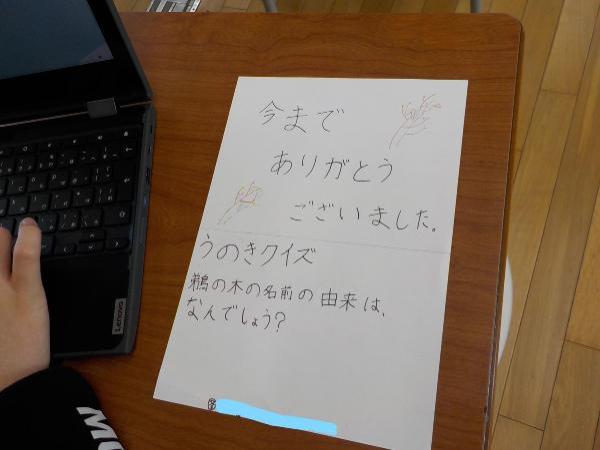 今まで
ありがとう
ございました。
うのきクイズ
鵜の木の名前の由来は、
なんでしょう?
Lenovo